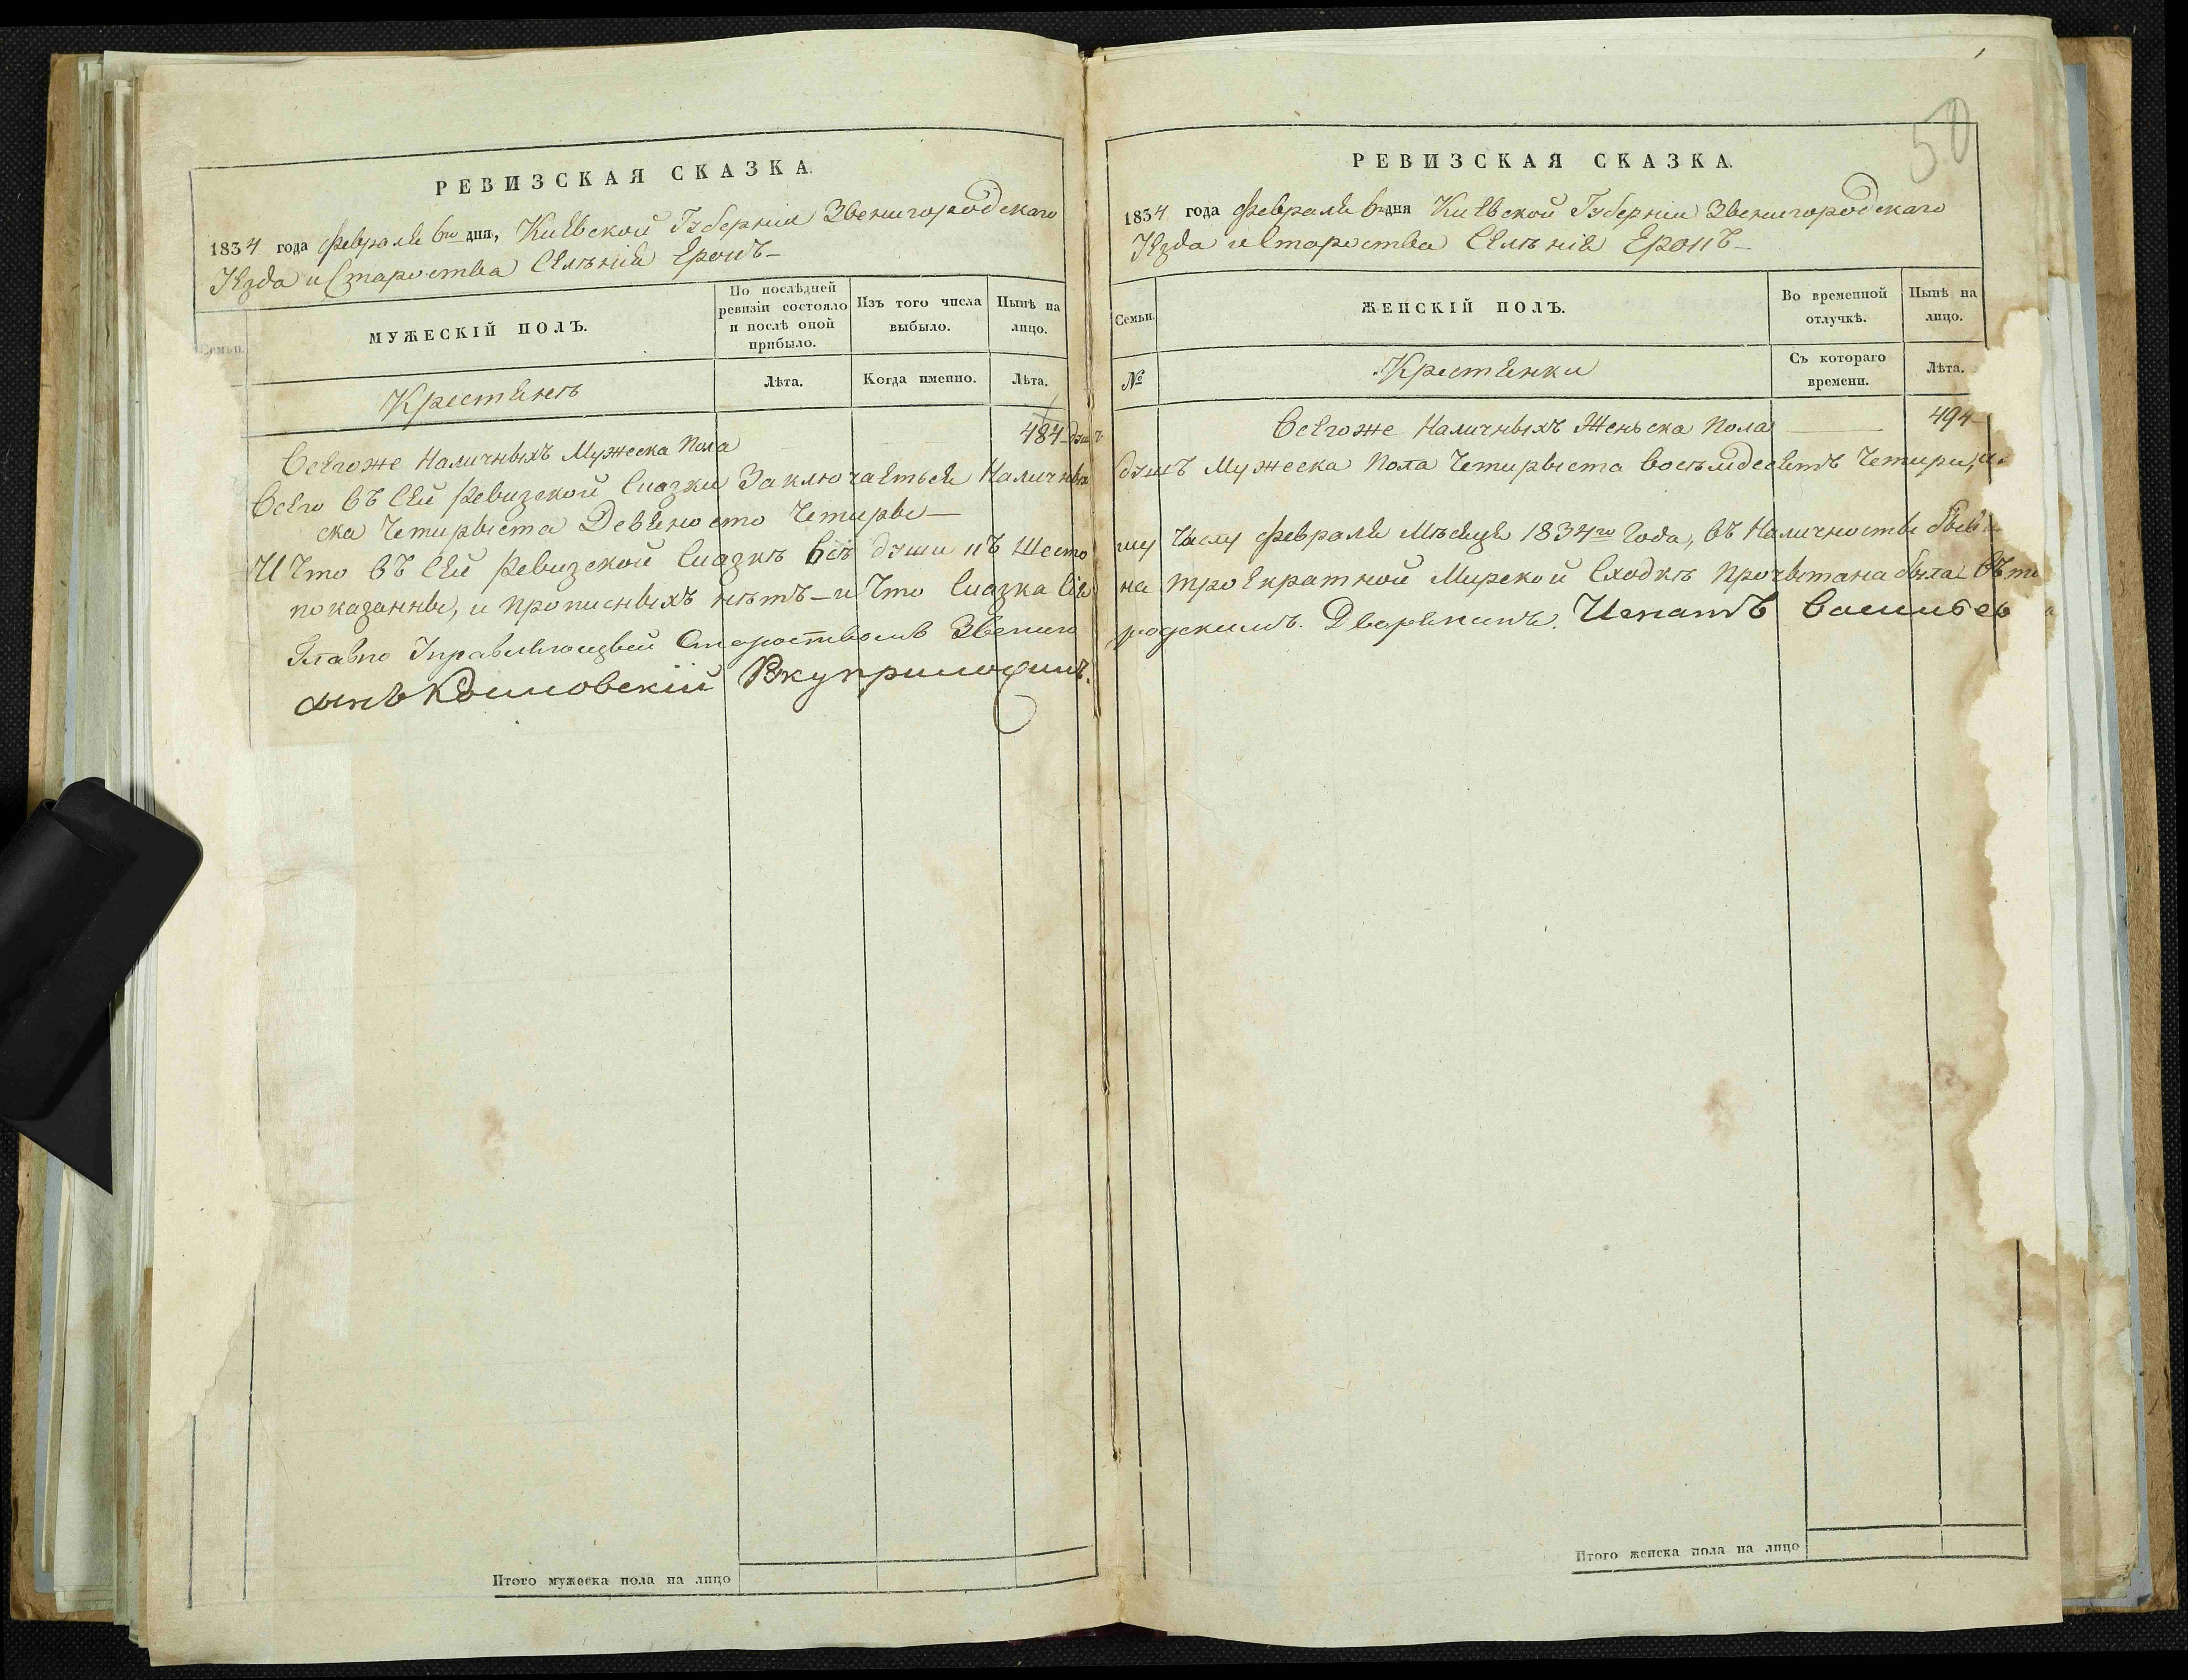 50
РЕВИЗСКАЯ СКАЗКА.
1834 года Февраля 6го дня, Киевской Губерніи Звенигородскаго
Уезда и Староства Селѣнія Еропъ-
Семьи.
МУЖЕСКІЙ ПОЛЪ.
По послѣдней ревизіи состояло и послѣ оной прибыло.
Изъ того числа выбыло.
Нынѣ на лицо.
Крестянъ
Лѣта.
Когда именно.
Лѣта.
Всегоже Наличныхъ Мужеска Пола 484
Всего въ Сей Ревизской Сказки Заключаеться Наличных
ска Четырыста Девяносто Четыры—
И Что въ Сей Ревизской Сказкѣ Всѣ души къ Шесто
показанны, и прописныхъ нѣтъ - и Что Сказка Сія
Главно Управляющый Староствомъ Звениго
РЕВИЗСКАЯ СКАЗКА.
1834 года Февраля 6го дня Киевской Губерніи Звенигородскаго
Уезда и Староства Селѣнія Еропъ-
Семьи.
ЖЕНСКІЙ ПОЛЪ.
Во временной отлучкѣ.
Нынѣ на лицо.
№
Крестянки
Съ котораго времени.
Лѣта.
Всегоже Наличныхъ Женьска Пола — 494
душъ Мужеска Пола Четырыста восѣмдесятъ Четыри, и
му Числу Февраля Мѣсяця 1834го Года, въ Наличности
на троекратной Мирской Сходкѣ прочытана была
родскимъ. Дворянинъ. Игнатъ Васильев
сынъ Руку приложилъ.
Итого мужеска пола на лицо
Итого женска пола на лицо